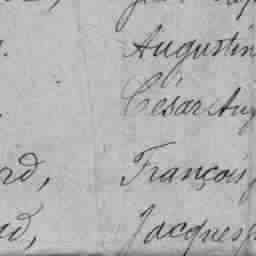 Augustin
César Aug
rd, François
d, Jacques